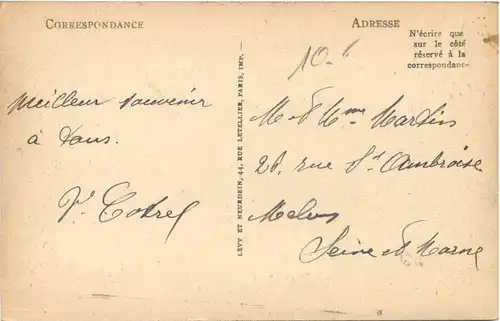 CORRESPONDANCE
Meilleur souvenir
à tous.
LÉVY ET NEURDEIN, 44, RUE LETELLIER, PARIS, IMP.
ADRESSE
N'écrire que
sur le côté
réservé à la
correspondance
10.-
M et Mme Martin
26, rue St Ambroise
Melun
Seine et Marne